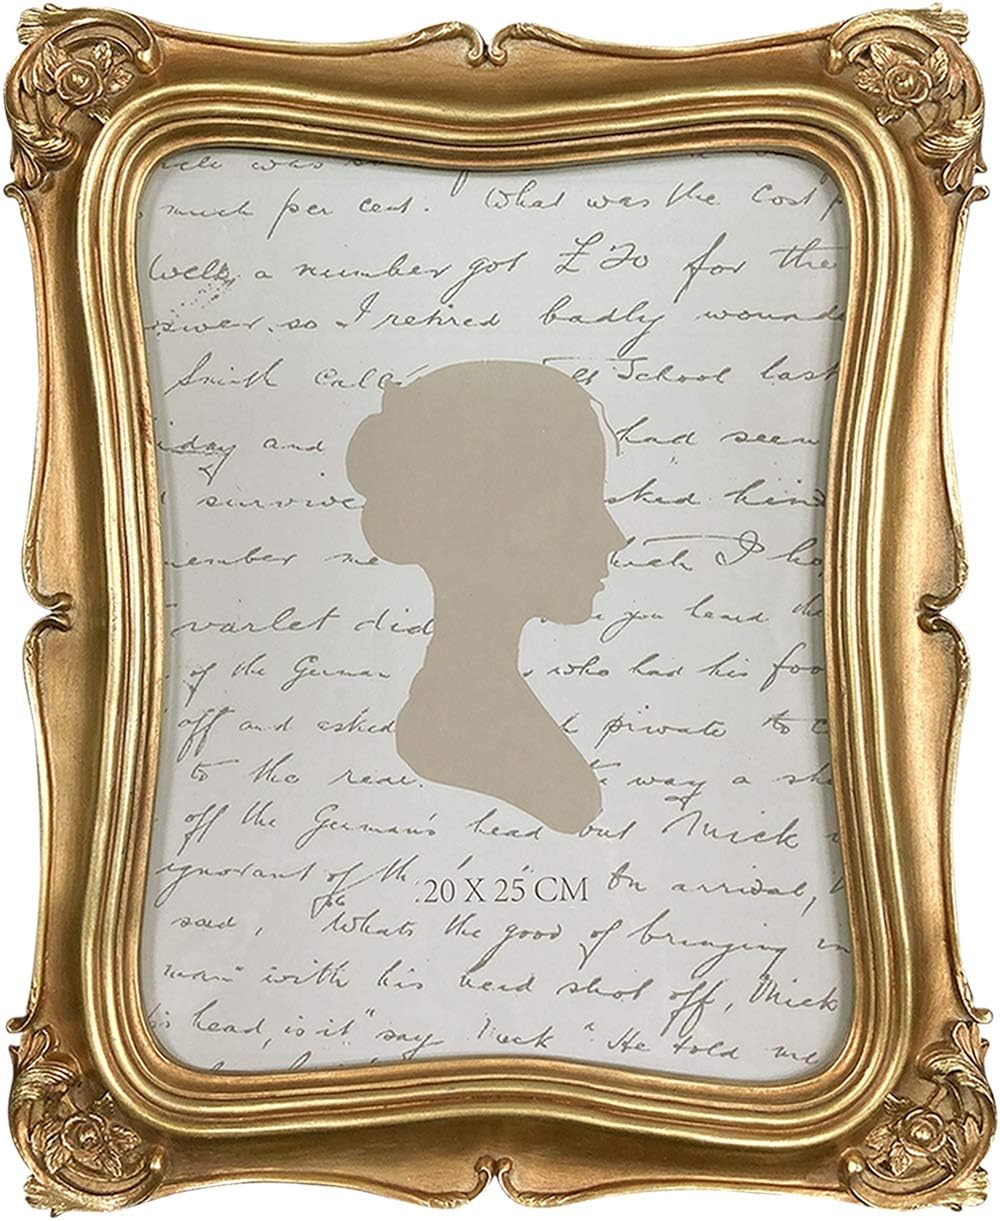 much per cent. What was the cost p
Well, a number got £70 for the
so I retired badly wounde
Smith Call School last
day and had seen
survive sked hind
ember me I ho
varlet did you heard the
of the German who had his foo
off and asked private to c
to the rear. way a
off the German's head but Mick
ignorant of the On arrival,
20 X 25 CM
said, Whats the good of bringing
man" with his head shot off, Mick
head, is it" say Mick "He told me